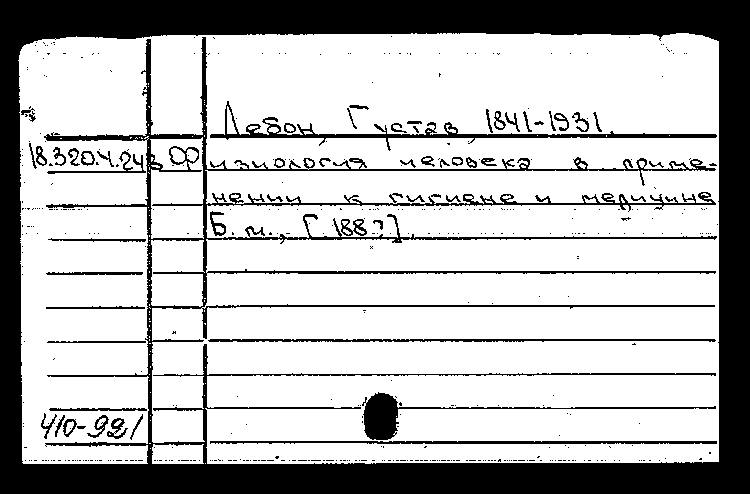 Лебон, Густав, 1841-1931.
18.320.4.243 Физиология человека в приме-
нении к гигиене и медицине
Б. м., [188?].
410-921